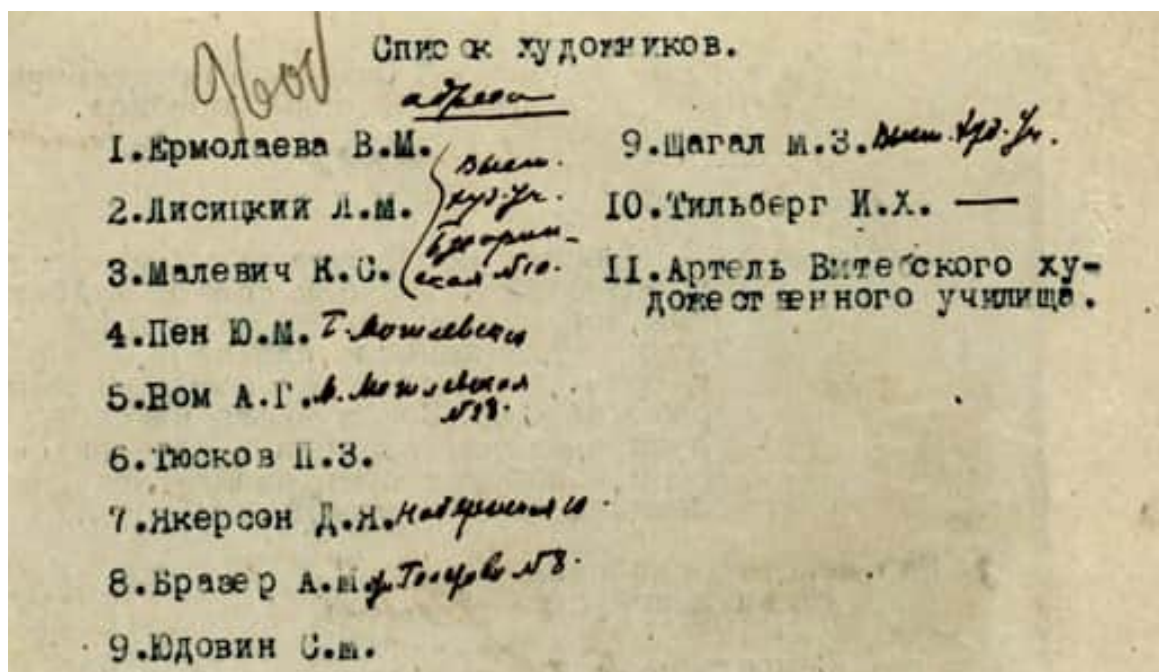 Список художников.
адреса
1. Ермолаева В.М.
2. Лисицкий Л.М.
3. Малевич К.С.
Высш.
худ. уч.
Бухарин-
ская №10.
4. Пен Ю.М.
5. Ром А.Г. М. Могилевская
№18.
6. Тюсков П.З.
7. Якерсон Д.Я.
8. Бразер А.М.
№8.
9. Юдовин С.Б.
9. Шагал М.З. Высш. худ. уч.
10. Тильберг И.Х. —
11. Артель Витебского ху-
дожественного училища.